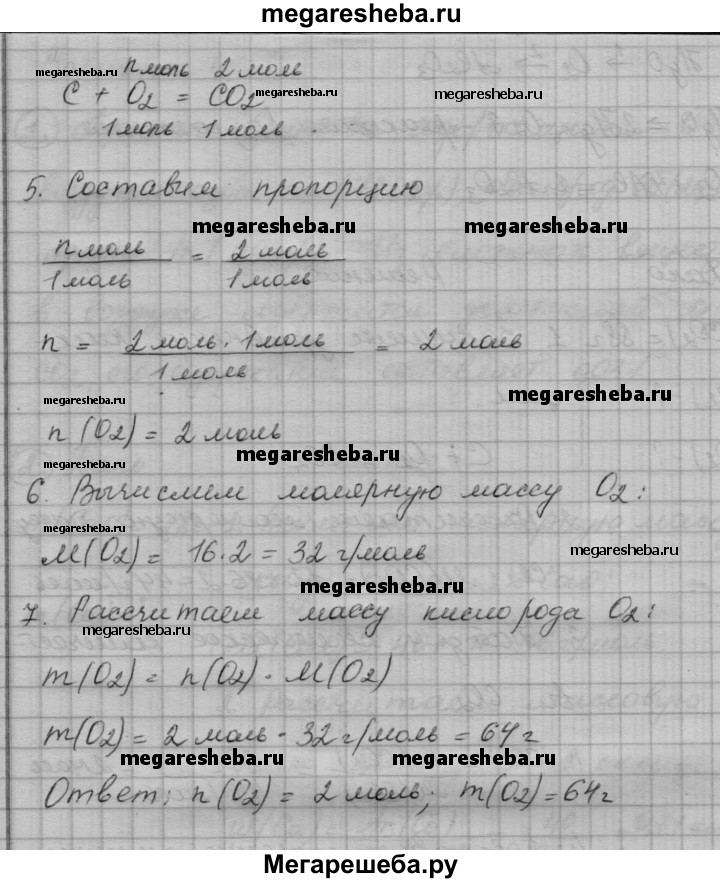 megaresheba.ru
n моль 2 моль
megaresheba.ru
C + O2 = CO2
megaresheba.ru
megaresheba.ru
1 моль 1 моль.
5. Составим пропорцию
megaresheba.ru
megaresheba.ru
n моль = 2 моль
1 моль 1 моль
n = 2 моль · 1 моль = 2 моль
1 моль
megaresheba.ru
megaresheba.ru
n (O2) = 2 моль
megaresheba.ru
6. Вычислим молярную массу O2:
megaresheba.ru
M(O2) = 16·2 = 32 г/моль
megaresheba.ru
megaresheba.ru
7. Рассчитаем массу кислорода O2:
megaresheba.ru
m(O2) = n(O2) · M(O2)
m(O2) = 2 моль · 32 г/моль = 64 г
megaresheba.ru
megaresheba.ru
Ответ: n(O2) = 2 моль; m(O2) = 64 г
Мегарешеба.ру